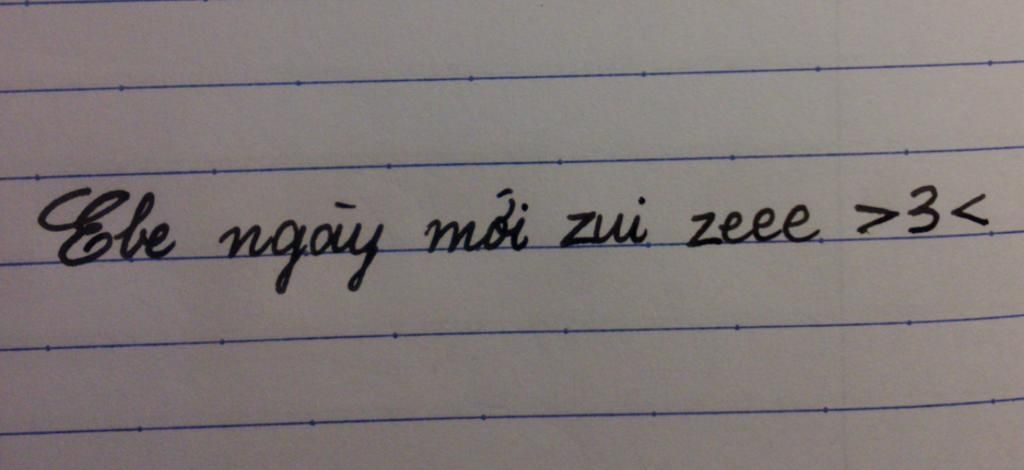 Ebe ngày mới zui zeee >3<